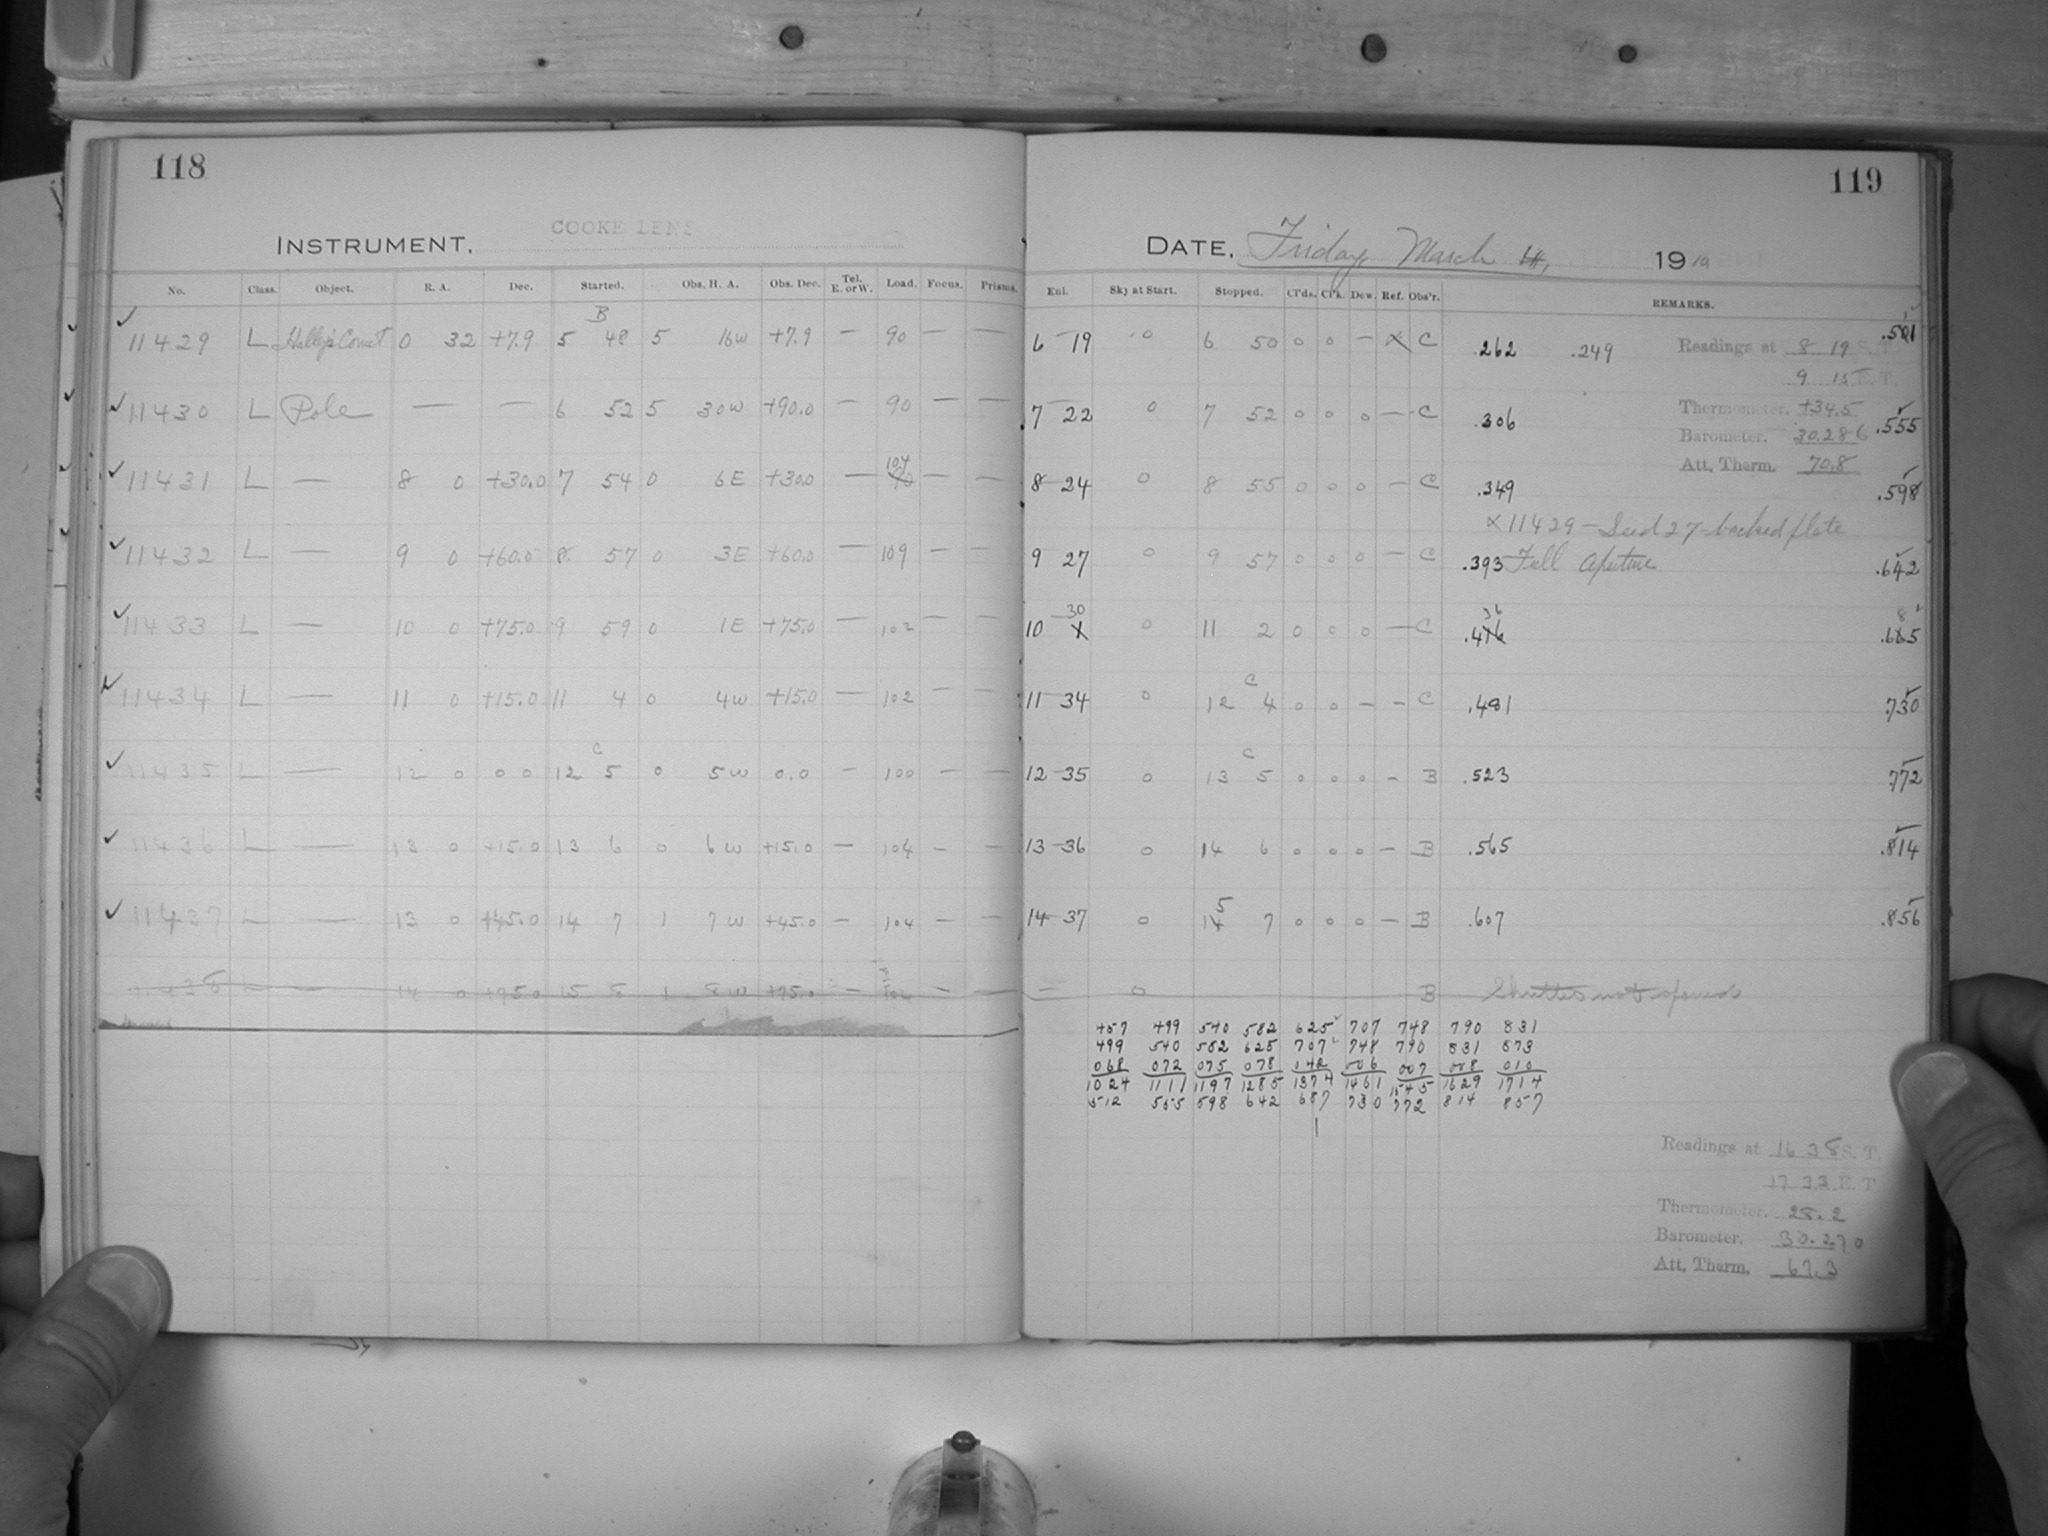 118
119
COOKE LENS
INSTRUMENT.
DATE, Friday, March 4, 1910
No. Class. Object. R. A. Dec. Started. Obs. H. A. Obs. Dec. Tel. E. or W. Load. Focus. Prisms. Ext. Sky at Start. Stopped. Cl'ds. Cl'k. Dew. Ref. Obs'r. REMARKS.
B
11429 L Halley's Comet 0 32 +7.9 5 48 5 16W +7.9 — 90 — — 6 19 0 6 50 0 0 — X C .262 .249
Readings at 8 19 S. T.
9 15 E. T.
11430 L Pole — — 6 52 5 30W +90.0 — 90 — — 7 22 0 7 52 0 0 0 — C .306 .555
Thermometer. +34.5
Barometer. 30.286
Att. Therm. 70.8
11431 L — 8 0 +30.0 7 54 0 6E +30.0 — 104 — — 8 24 0 8 55 0 0 0 — C .349 .598
X 11429 — Seed 27 - backed plate
11432 L — 9 0 +60.0 8 57 0 3E +60.0 — 109 — — 9 27 0 9 57 0 0 0 — C .393 Full Aperture .642
11433 L — 10 0 +75.0 9 59 0 1E +75.0 — 102 — — 10 30 0 11 2 0 0 0 — C .436 .685
11434 L — 11 0 +15.0 11 4 0 4W +15.0 — 102 — — 11 34 0 12 C 4 0 0 — — C .481 .730
11435 L — 12 0 0 0 12 C 5 0 5W 0.0 — 100 — — 12 35 0 13 C 5 0 0 0 — B .523 .772
11436 L — 13 0 +15.0 13 6 0 6W +15.0 — 104 — — 13 36 0 14 6 0 0 0 — B .565 .814
11437 L — 13 0 +45.0 14 7 1 7W +45.0 — 104 — — 14 37 0 15 7 0 0 0 — B .607 .856
11438 L — 14 0 +75.0 15 8 1 8W +75.0 — — — — 0 B Shutter not opened
457 499 540 582 625 707 748 790 831
499 540 582 625 707 748 790 831 873
068 072 075 078 142 006 007 008 010
1024 1111 1197 1285 1374 1461 1545 1629 1714
512 555 598 642 687 730 772 814 857
Readings at 16 38 S. T.
17 33 E. T.
Thermometer. 28.2
Barometer. 30.270
Att. Therm. 67.3